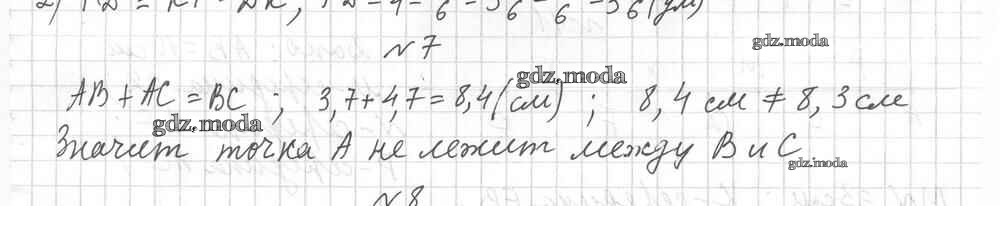 gdz.moda
№7
gdz.moda
AB + AC = BC ; 3,7 + 4,7 = 8,4 (см) ; 8,4 см ≠ 8,3 см
gdz.moda
Значит точка А не лежит между В и С
gdz.moda
№8